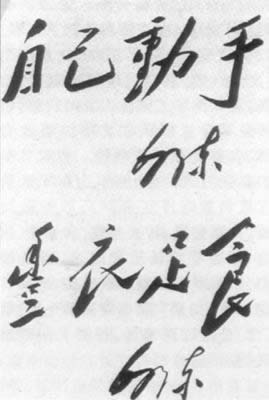 自己動手
毛澤東
豐衣足食
毛澤東